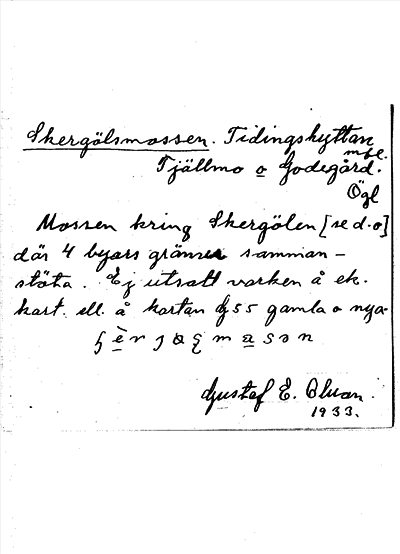 Skergölsmossen. Tidingshyttan
mbl.
Tjällmo o Godegård.
Ögl
Mossen kring Skergölen [se d.o]
där 4 byars gränser samman-
stöta. Ej utsatt varken å ek.
kart. ell. å kartan G55 gamla o nya.
Gustaf E. Olson.
1933.